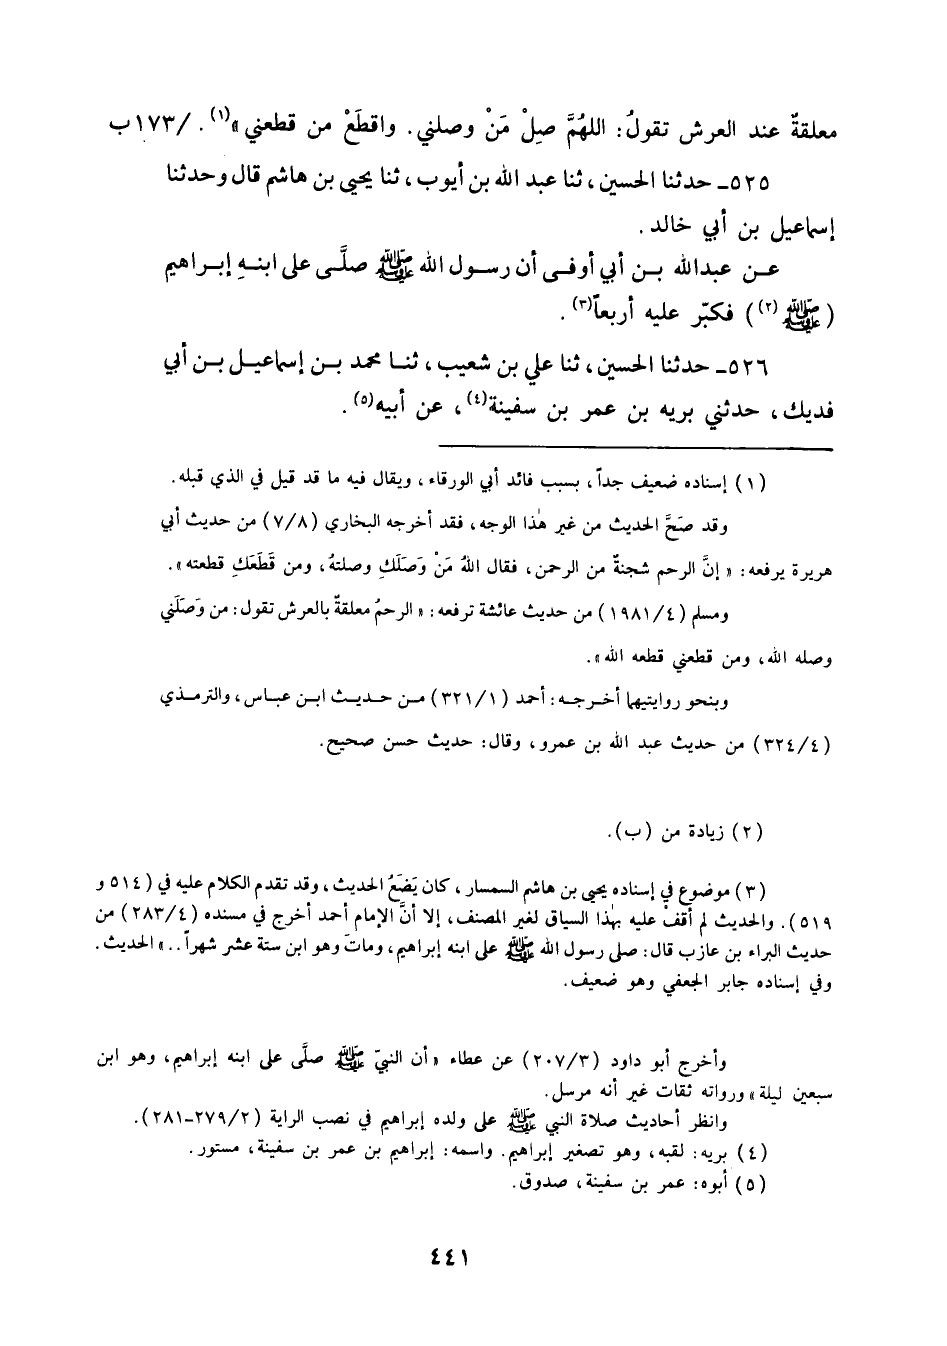 معلقةٌ عند العرش تقولُ: اللهُمَّ صِلْ مَنْ وصلني. واقطَعْ من قطعني»(١). /١٧٣ب
٥٢٥ـ حدثنا الحسين، ثنا عبد الله بن أيوب، ثنا يحيى بن هاشم قال وحدثنا
إسماعيل بن أبي خالد.
عن عبدالله بن أبي أوفى أن رسول الله ﷺ صلَّى على ابنهِ إبراهيم
(ﷺ(٢)) فكبّر عليه أربعاً(٣).
٥٢٦ـ حدثنا الحسين، ثنا علي بن شعيب، ثنا محمد بن إسماعيل بن أبي
فديك، حدثني بريه بن عمر بن سفينة(٤)، عن أبيه(٥).
(١) إسناده ضعيف جداً، بسبب فائد أبي الورقاء، ويقال فيه ما قد قيل في الذي قبله.
وقد صَحَّ الحديث من غير هٰذا الوجه، فقد أخرجه البخاري (٧/٨) من حديث أبي
هريرة يرفعه: «إنَّ الرحم شجنةٌ من الرحمن، فقال اللهُ مَنْ وَصَلَكِ وصلتهُ، ومن قَطَعَكِ قطعته».
ومسلم (١٩٨١/٤) من حديث عائشة ترفعه: «الرحمُ معلقةٌ بالعرش تقول: من وَصَلَني
وصله الله، ومن قطعني قطعه الله».
وبنحو روايتيهما أخرجه: أحمد (٣٢١/١) من حديث ابن عباس، والترمذي
(٣٢٤/٤) من حديث عبد الله بن عمرو، وقال: حديث حسن صحيح.
(٢) زيادة من (ب).
(٣) موضوع في إسناده يحيى بن هاشم السمسار، كان يَضَعُ الحديث، وقد تقدم الكلام عليه في (٥١٤ و
٥١٩). والحديث لم أقفْ عليه بهٰذا السياق لغير المصنف، إلا أنَّ الإمام أحمد أخرج في مسنده (٢٨٣/٤) من
حديث البراء بن عازب قال: صلى رسول الله ﷺ على ابنه إبراهيم، وماتَ وهو ابن ستة عشر شهراً..» الحديث.
وفي إسناده جابر الجعفي وهو ضعيف.
وأخرج أبو داود (٢٠٧/٣) عن عطاء «أن النبيّ ﷺ صلَّى على ابنه إبراهيم، وهو ابن
سبعين ليلة» ورواته ثقات غير أنه مرسل.
وانظر أحاديث صلاة النبي ﷺ على ولده إبراهيم في نصب الراية (٢٧٩/٢ـ٢٨١).
(٤) بريه: لقبه، وهو تصغير إبراهيم. واسمه: إبراهيم بن عمر بن سفينة، مستور.
(٥) أبوه: عمر بن سفينة، صدوق.
٤٤١